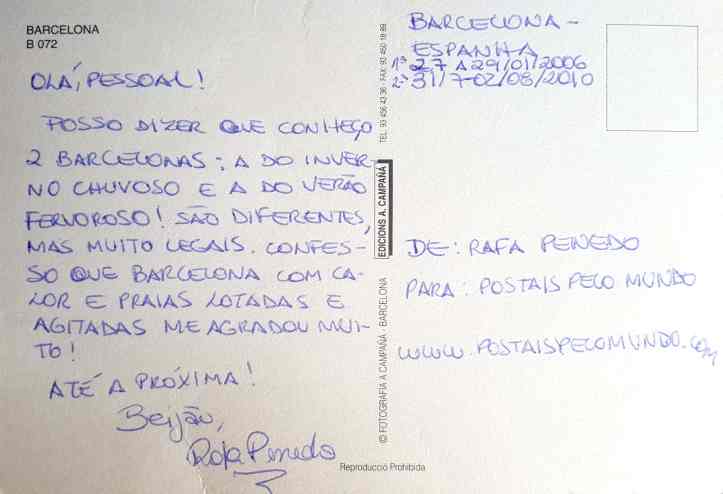 BARCELONA
B 072
OLÁ, PESSOAL!
POSSO DIZER QUE CONHEÇO
2 BARCELONAS: A DO INVER-
NO CHUVOSO E A DO VERÃO
FERVOROSO! SÃO DIFERENTES,
MAS MUITO LEGAIS. CONFES-
SO QUE BARCELONA COM CA-
LOR E PRAIAS LOTADAS E
AGITADAS ME AGRADOU MUI-
TO!
ATÉ A PRÓXIMA!
Beijão,
Rafa Penedo
Reproducció Prohibida
© FOTOGRAFIA A CAMPAÑÁ - BARCELONA
EDICIONS A. CAMPAÑÁ
TEL. 93 456 43 36 - FAX: 93 450 18 89
BARCELONA -
ESPANHA
1ª 27 A 29/01/2006
2ª 31/7-02/08/2010
DE: RAFA PENEDO
PARA: POSTAIS PELO MUNDO
WWW.POSTAISPELOMUNDO.COM